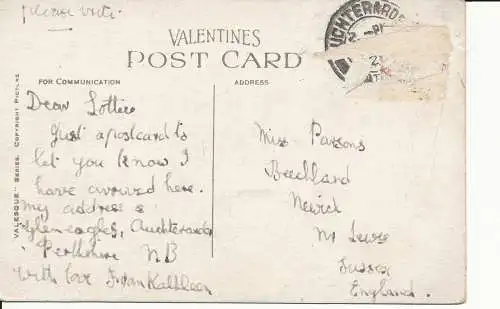 please write
VALENTINES
POST CARD
FOR COMMUNICATION
ADDRESS
"VALESQUE" SERIES. COPYRIGHT PICTURE
AUCHTERARDE
Dear Lottie
Just a postcard to
let you know I
have arrived here.
my address is
Gleneagles, Auchterarder
Perthshire N B
with love from Kathleen
Miss Parsons
Beechland
Newick
Nr Lewes
Sussex
England.